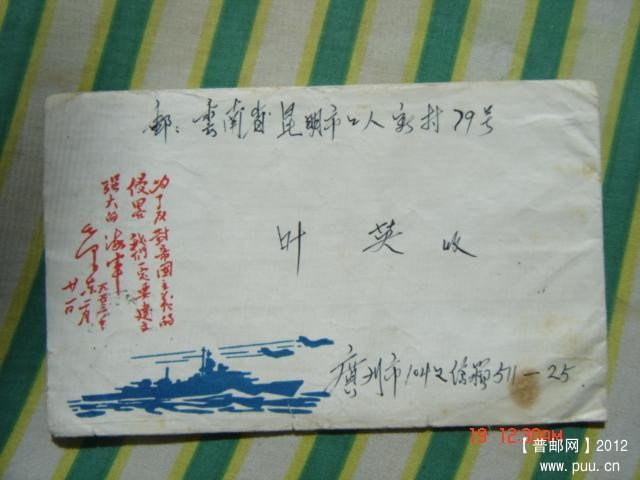 邮：雲南省昆明市工人新村79号
为了反对帝国主义的
侵略 我们一定要建立
强大的海军
毛泽东
一九五三年二月
廿一日
叶 英 收
廣州市104号信箱511-25
【普邮网】2012
www.puu.cn